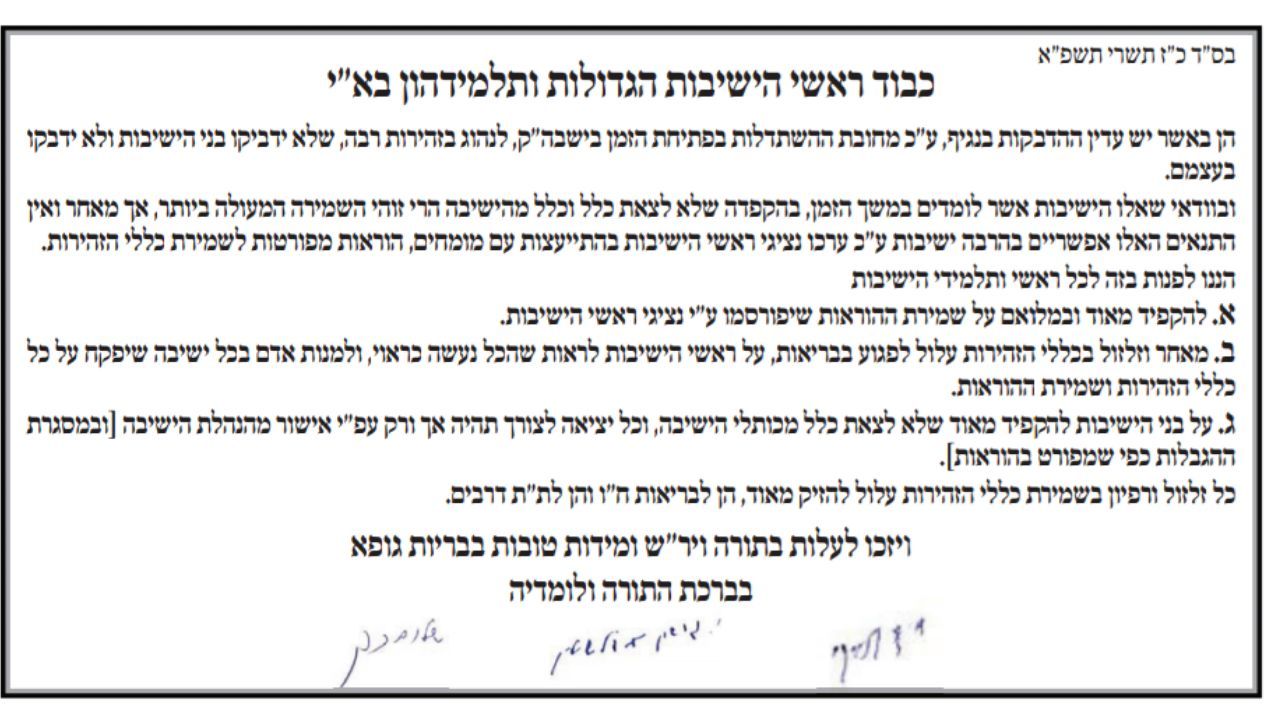 בס"ד כ"ז תשרי תשפ"א
כבוד ראשי הישיבות הגדולות ותלמידהון בא"י
הן באשר יש עדין ההדבקות בנגיף, ע"כ מחובת ההשתדלות בפתיחת הזמן בישבה"ק, לנהוג בזהירות רבה, שלא ידביקו בני הישיבות ולא ידבקו
בעצמם.
ובוודאי שאלו הישיבות אשר לומדים במשך הזמן, בהקפדה שלא לצאת כלל וכלל מהישיבה הרי זוהי השמירה המעולה ביותר, אך מאחר ואין
התנאים האלו אפשריים בהרבה ישיבות ע"כ ערכו נציגי ראשי הישיבות בהתייעצות עם מומחים, הוראות מפורטות לשמירת כללי הזהירות.
הננו לפנות בזה לכל ראשי ותלמידי הישיבות
א. להקפיד מאוד ובמלואם על שמירת ההוראות שיפורסמו ע"י נציגי ראשי הישיבות.
ב. מאחר וזלזול בכללי הזהירות עלול לפגוע בבריאות, על ראשי הישיבות לראות שהכל נעשה כראוי, ולמנות אדם בכל ישיבה שיפקח על כל
כללי הזהירות ושמירת ההוראות.
ג. על בני הישיבות להקפיד מאוד שלא לצאת כלל מכותלי הישיבה, וכל יציאה לצורך תהיה אך ורק עפ"י אישור מהנהלת הישיבה [ובמסגרת
ההגבלות כפי שמפורט בהוראות].
כל זלזול ורפיון בשמירת כללי הזהירות עלול להזיק מאוד, הן לבריאות ח"ו והן לת"ת דרבים.
ויזכו לעלות בתורה ויר"ש ומידות טובות בבריות גופא
בברכת התורה ולומדיה